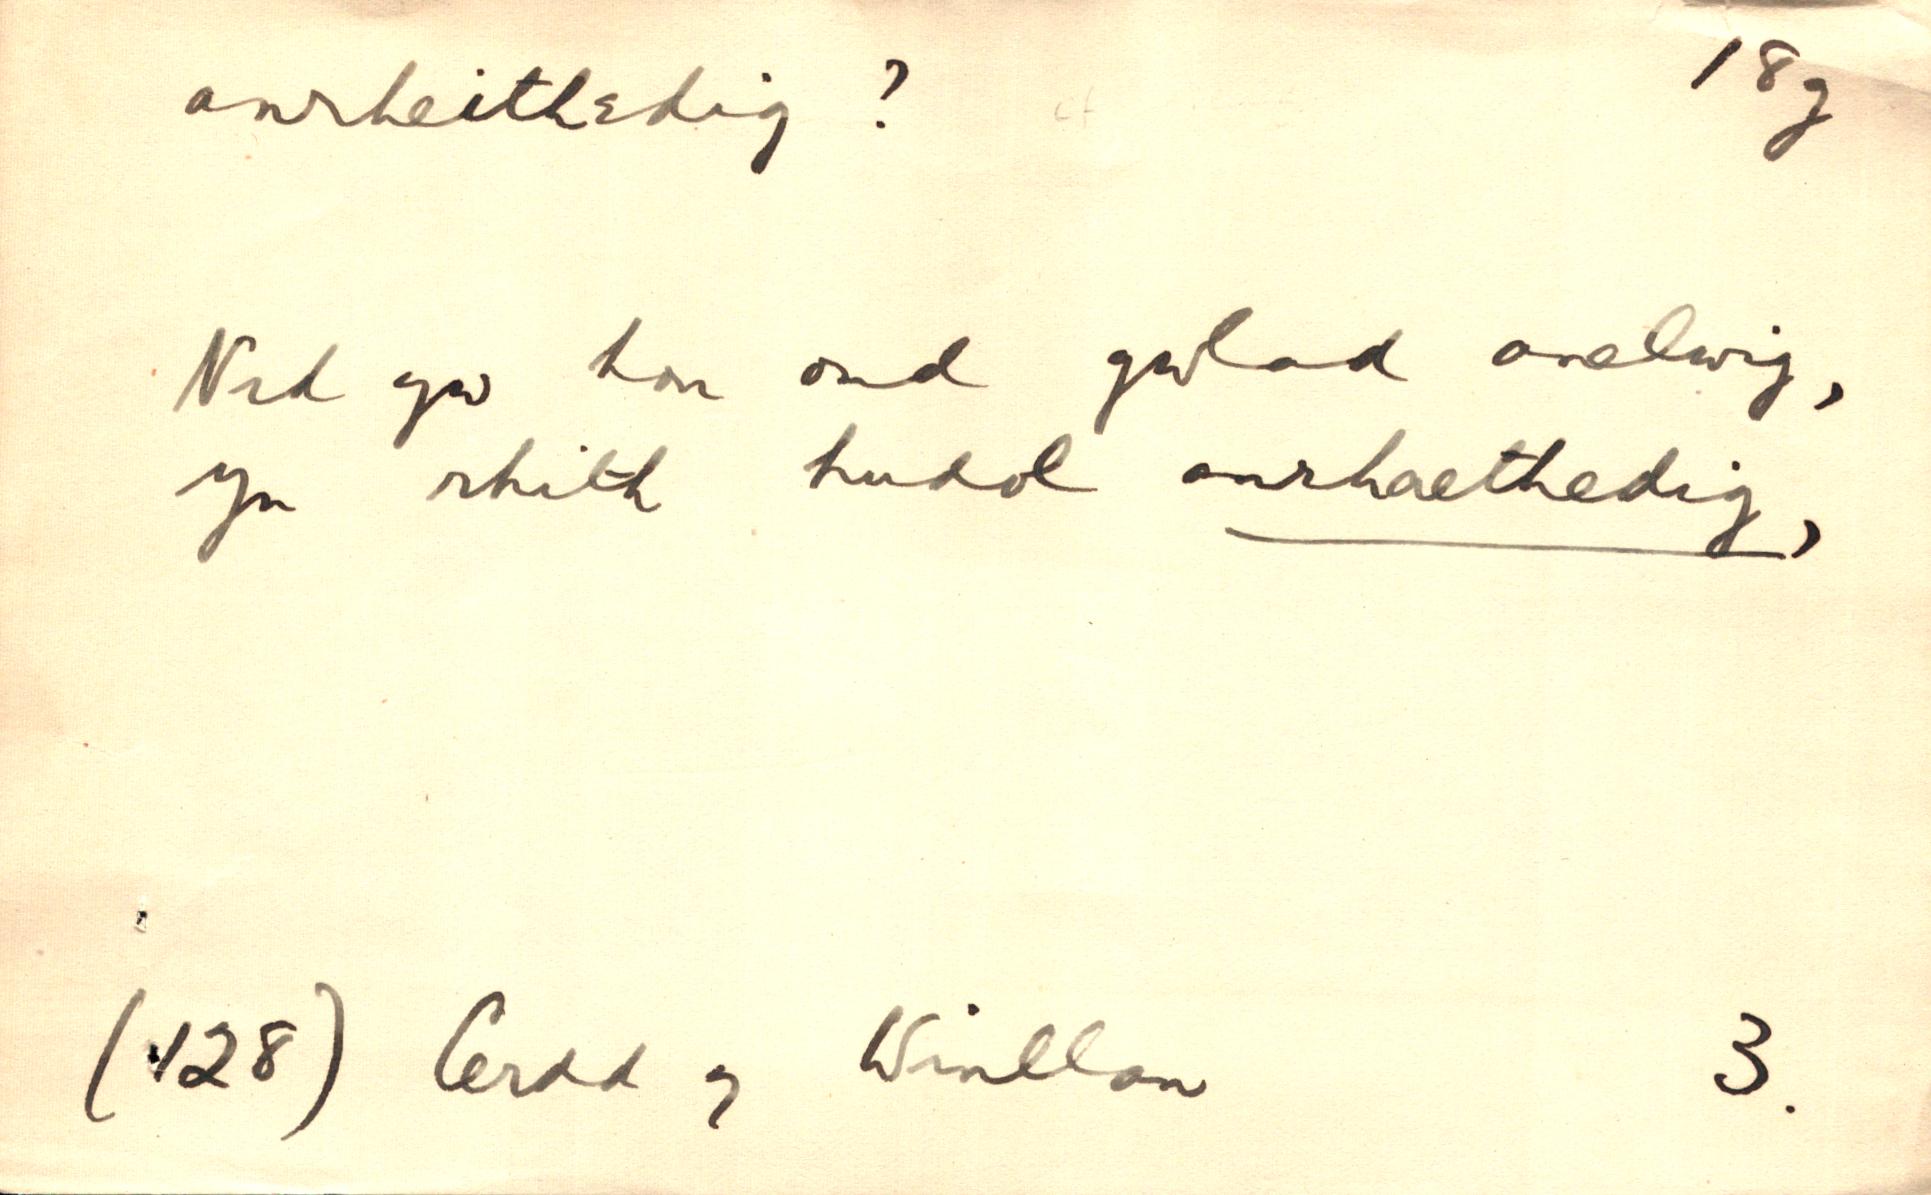 anrheithedig ? 18g
Nid yw hon ond gwlad anelwig,
yn rhith hudol anrhaethedig,
(128) Cerdd y Winllan 3.